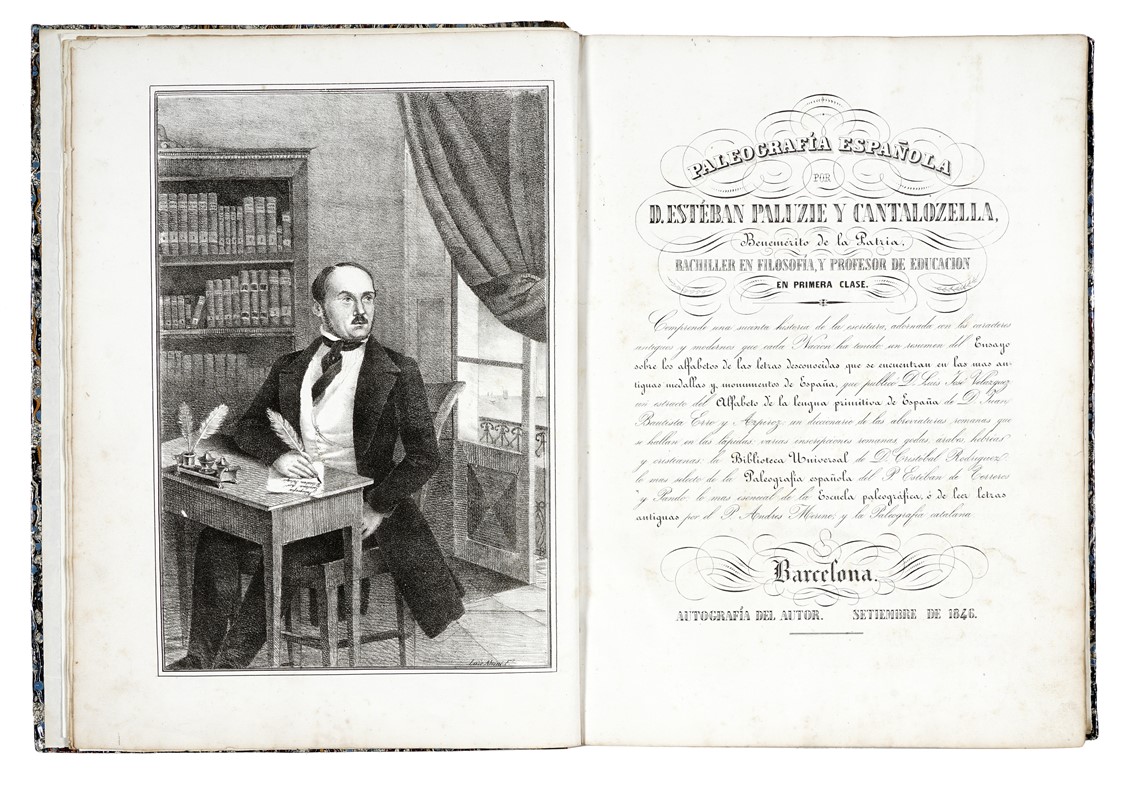 PALEOGRAFÍA ESPAÑOLA
POR
D. ESTÉBAN PALUZIE Y CANTALOZELLA,
Benemérito de la Patria,
BACHILLER EN FILOSOFÍA, Y PROFESOR DE EDUCACION
EN PRIMERA CLASE.
Comprende una sucinta historia de la escritura, adornada con los caracteres
antiguos y modernos que cada Nacion ha tenido: un resumen del Ensayo
sobre los alfabetos de las letras desconocidas que se encuentran en las mas an-
tiguas medallas y monumentos de España, que publicó D. Luis José Velazquez
un estracto del Alfabeto de la lengua primitiva de España de D. Juan
Bautista Erro y Azpiroz: un diccionario de las abreviaturas romanas que
se hallan en las lápidas: varias inscripciones romanas, godas, árabes, hebreas
y cristianas: la Biblioteca Universal de D. Cristóbal Rodriguez
lo mas selecto de la Paleografía española del P. Esteban de Terreros
y Pando: lo mas esencial de la Escuela paleográfica, ó de leer letras
antiguas por el P. Andres Merino; y la Paleografía catalana.
Barcelona.
AUTOGRAFÍA DEL AUTOR. SETIEMBRE DE 1846.